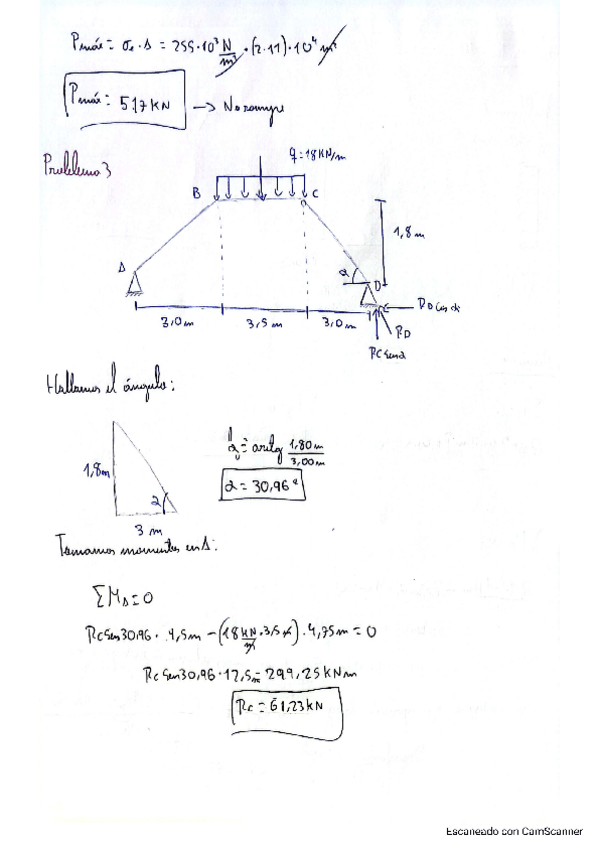 Pmáx = σe · A = 255·10³ N/m² · (2·11)·10⁴ m²
Pmáx = 517 KN → No rompe
Problema 3
q = 18 KN/m
B
C
1,8 m
A
α
D
3,0 m
3,5 m
3,0 m
RD cos α
RD
RC sen α
Hallamos el ángulo:
1,8m
α
3 m
α = arctg 1,80m/3,00m
α = 30,96º
Tomamos momentos en A:
ΣMA = 0
RC Sen 30,96 · 9,5m − (18 KN/m · 3,5 m) · 4,75m = 0
RC Sen 30,96 · 9,5m = 299,25 KNm
RC = 61,23 KN
Escaneado con CamScanner